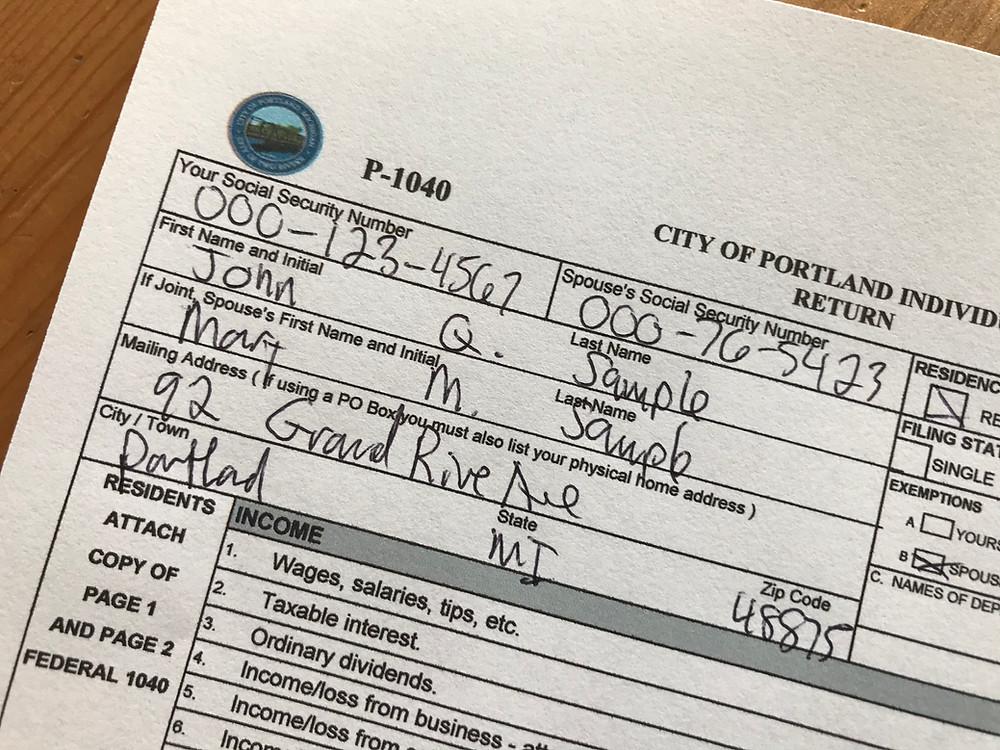 CITY OF PORTLAND, MICHIGAN
P-1040
CITY OF PORTLAND INDIVID
RETURN
Your Social Security Number
000-123-4567
Spouse's Social Security Number
000-76-5423
First Name and Initial
John Q.
Last Name
Sample
If Joint, Spouse's First Name and Initial
Mary M.
Last Name
Sample
Mailing Address ( If using a PO Box you must also list your physical home address )
92 Grand Rive Ave
City / Town
Portlad
State
MI
Zip Code
48875
RESIDENC
RE
FILING STA
SINGLE
EXEMPTIONS
A YOURS
B SPOUS
C. NAMES OF DEP
RESIDENTS
ATTACH
COPY OF
PAGE 1
AND PAGE 2
FEDERAL 1040
INCOME
1. Wages, salaries, tips, etc.
2. Taxable interest.
3. Ordinary dividends.
4. Income/loss from business - att
5. Income/loss from
6. Incom